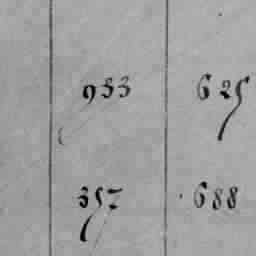 933 625
357 688